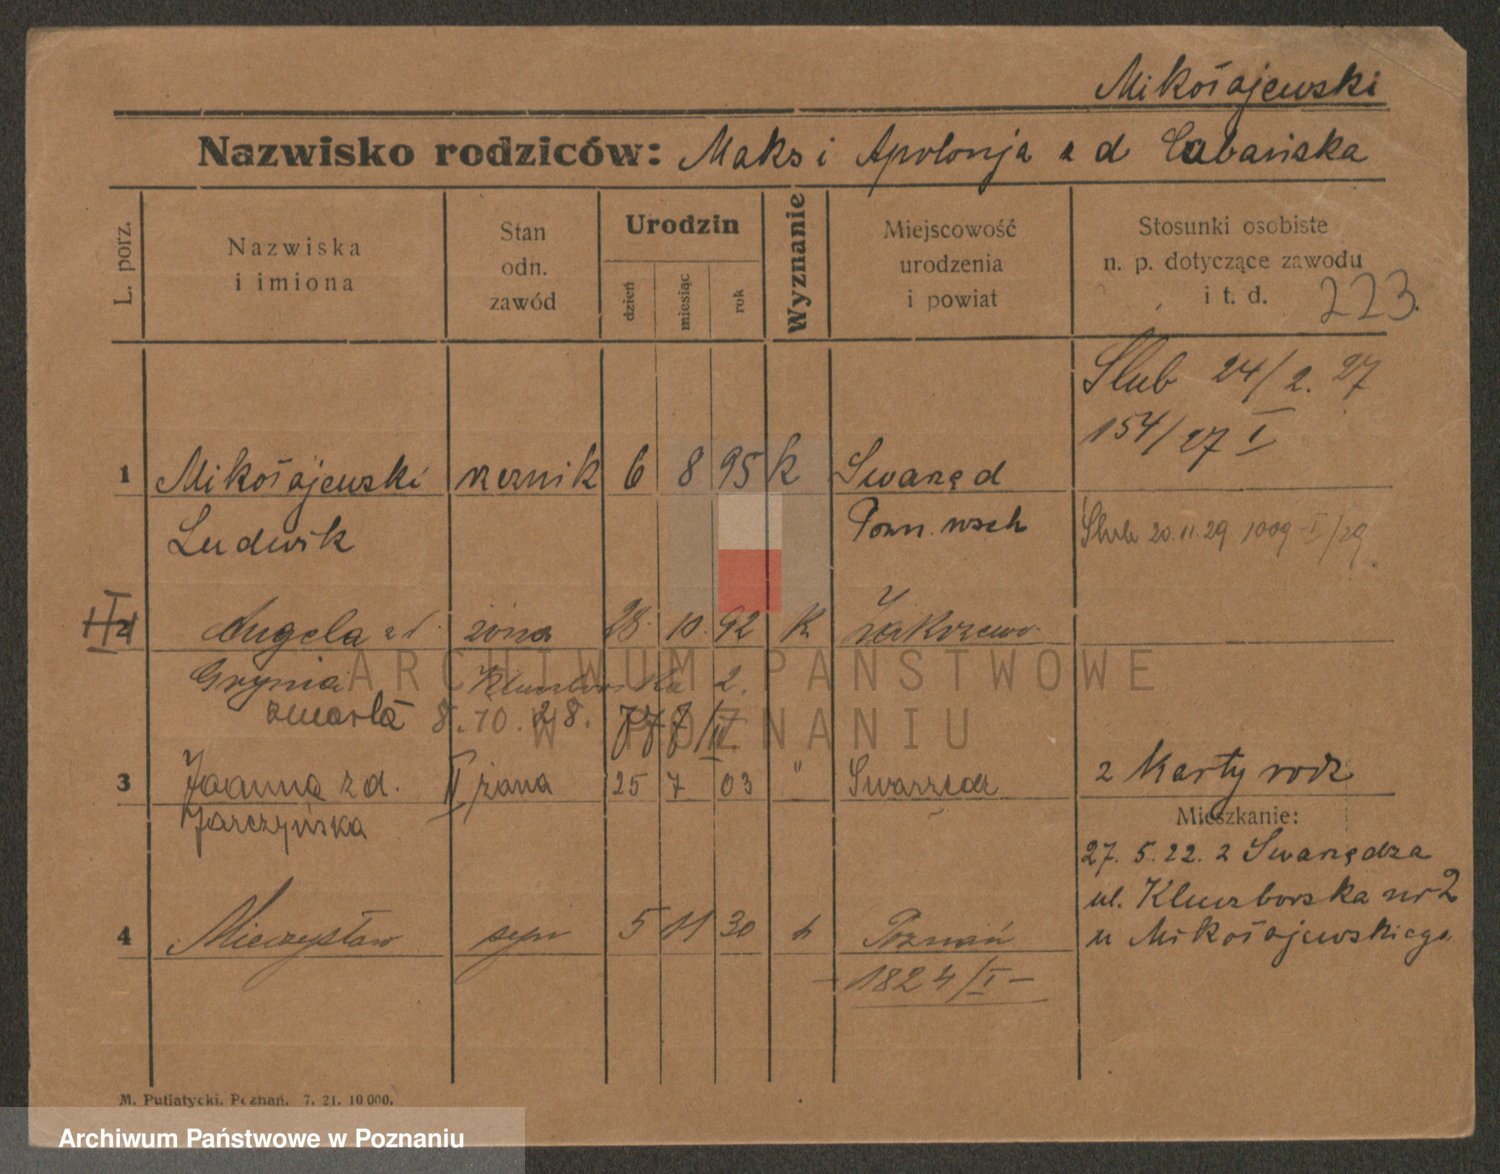 Mikołajewski
Nazwisko rodziców: Maks i Apolonja z d Cabańska
L. porz.
Nazwiska
i imiona
Stan
odn.
zawód
Urodzin
dzień
miesiąc
rok
Wyznanie
Miejscowość
urodzenia
i powiat
Stosunki osobiste
n. p. dotyczące zawodu
i t. d.
223.
Ślub 24/2. 27
154/27 I
1 Mikołajewski rzeźnik 6 8 95 k Swarzęd
Ludwik
Pozn. wsch
Ślub 20.11.29 1009 I/29.
I 2 Angela z d. żona 28. 10. 92 k. Zakrzewo
Grynia Kluczborska 2.
zmarła 8.10.28. 777/II.
3 Joanna z d. II żona 25 7 03 " Swarzędz
Jarczyńska
2 Karty rodz
Mieszkanie:
27. 5. 22. z Swarzędza
ul. Kluczborska nr 2
u Mikołajewskiego
4 Mieczysław syn 5 11 30 k Poznań
- 1824/I -
M. Putiatycki, Poznań. 7. 21. 10 000.
ARCHIWUM PAŃSTWOWE
W POZNANIU
Archiwum Państwowe w Poznaniu